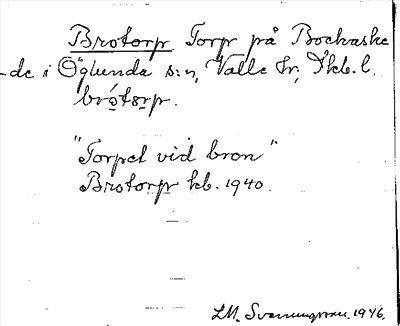 Brotorp Torp på Bockaske
-de i Öglunda s:n, Valle hr, Skb. l.
brótorp.
"Torpet vid bron"
Brotorp kb. 1940.
LM. Svanungsson. 1946.